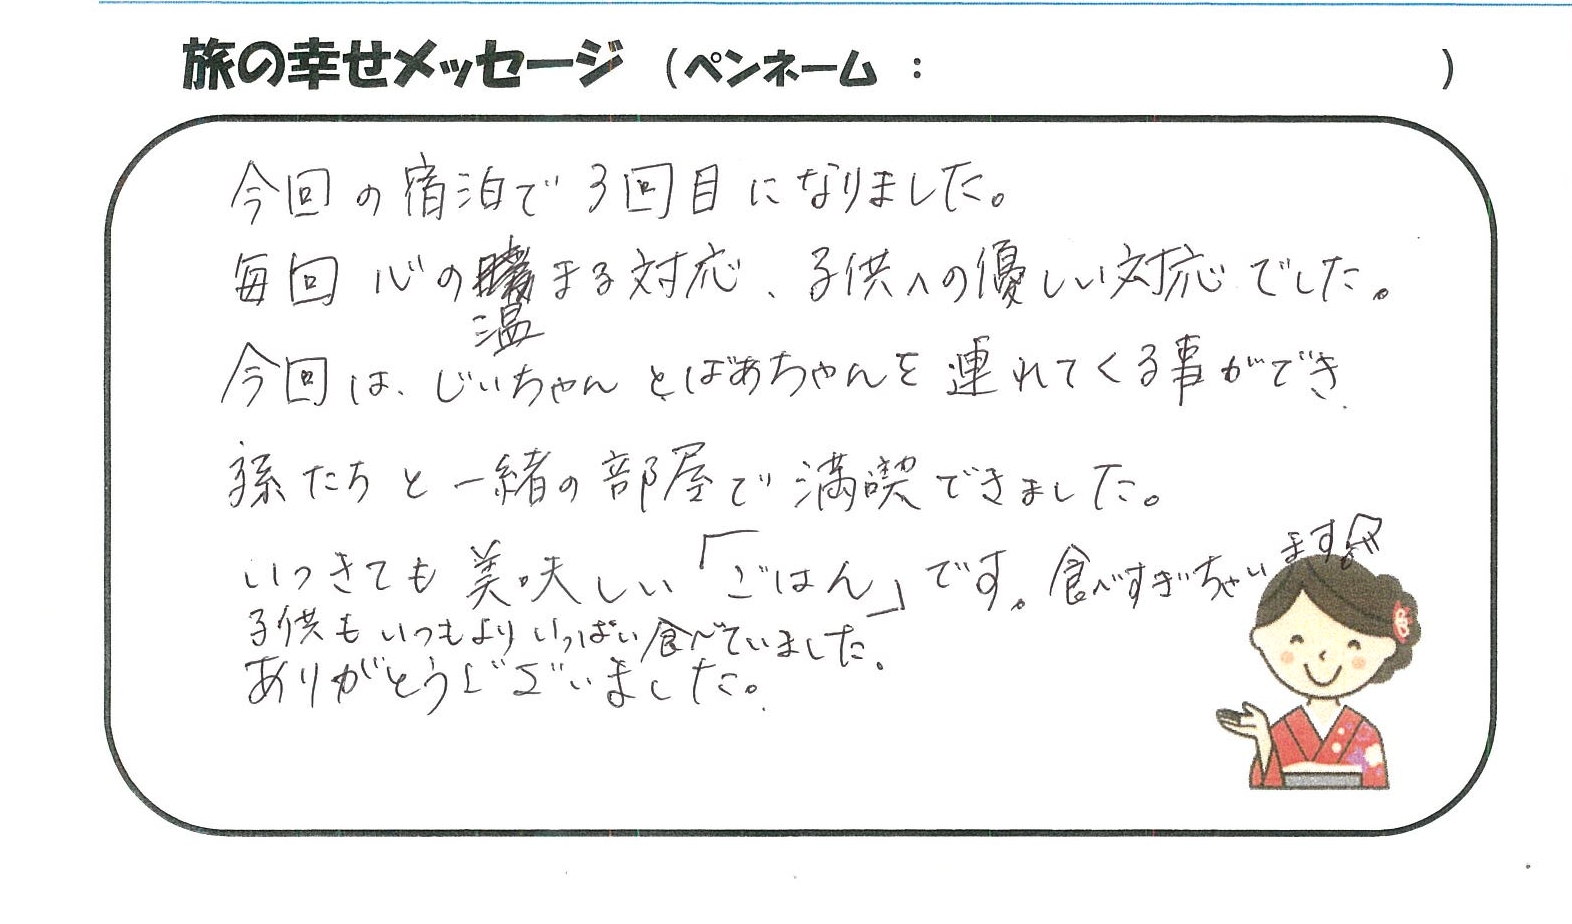 旅の幸せメッセージ (ペンネーム : )
今回の宿泊で3回目になりました。
毎回 心の温まる対応、子供への優しい対応でした。
今回は、じいちゃんとばあちゃんを連れてくる事ができ
孫たちと一緒の部屋で満喫できました。
いつきても美味しい「ごはん」です。食べすぎちゃいます
子供もいつもよりいっぱい食べていました。
ありがとうございました。